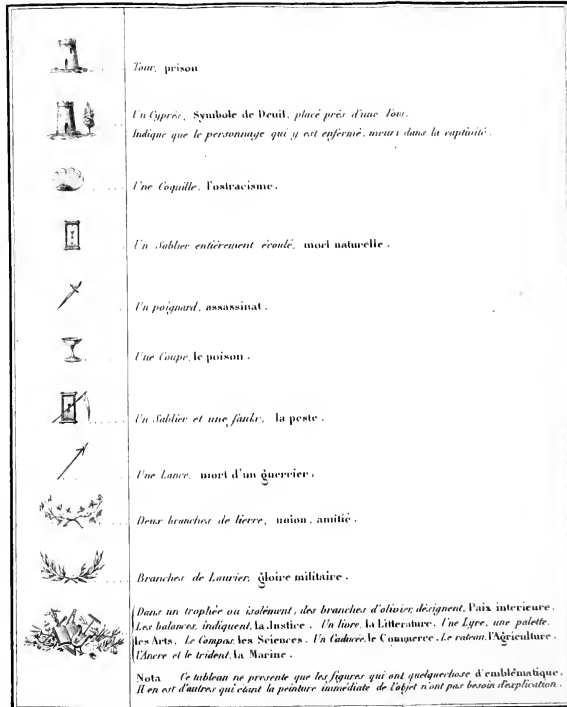 Tour, prison
Un Cyprés, Symbole de Deuil, placé près d'une Tour.
Indique que le personnage qui y est enfermé, meurt dans la captivité.
Une Coquille, l'ostracisme.
Un Sablier entièrement écoulé, mort naturelle.
Un poignard, assassinat.
Une Coupe, le poison.
Un Sablier et une faulx, la peste.
Une Lance, mort d'un guerrier.
Deux branches de lierre, union, amitié.
Branches de Laurier, gloire militaire.
Dans un trophée ou isolément, des branches d'olivier, désignent, Paix intérieure.
Les balances, indiquent, la Justice. Un livre, la Littérature. Une Lyre, une palette,
les Arts. Le Compas, les Sciences. Un Caducée, le Commerce. Le rateau, l'Agriculture.
l'Ancre et le trident, la Marine.
Nota Ce tableau ne présente que les figures qui ont quelquechose d'emblématique.
Il en est d'autres qui étant la peinture immédiate de l'objet n'ont pas besoin d'explication.